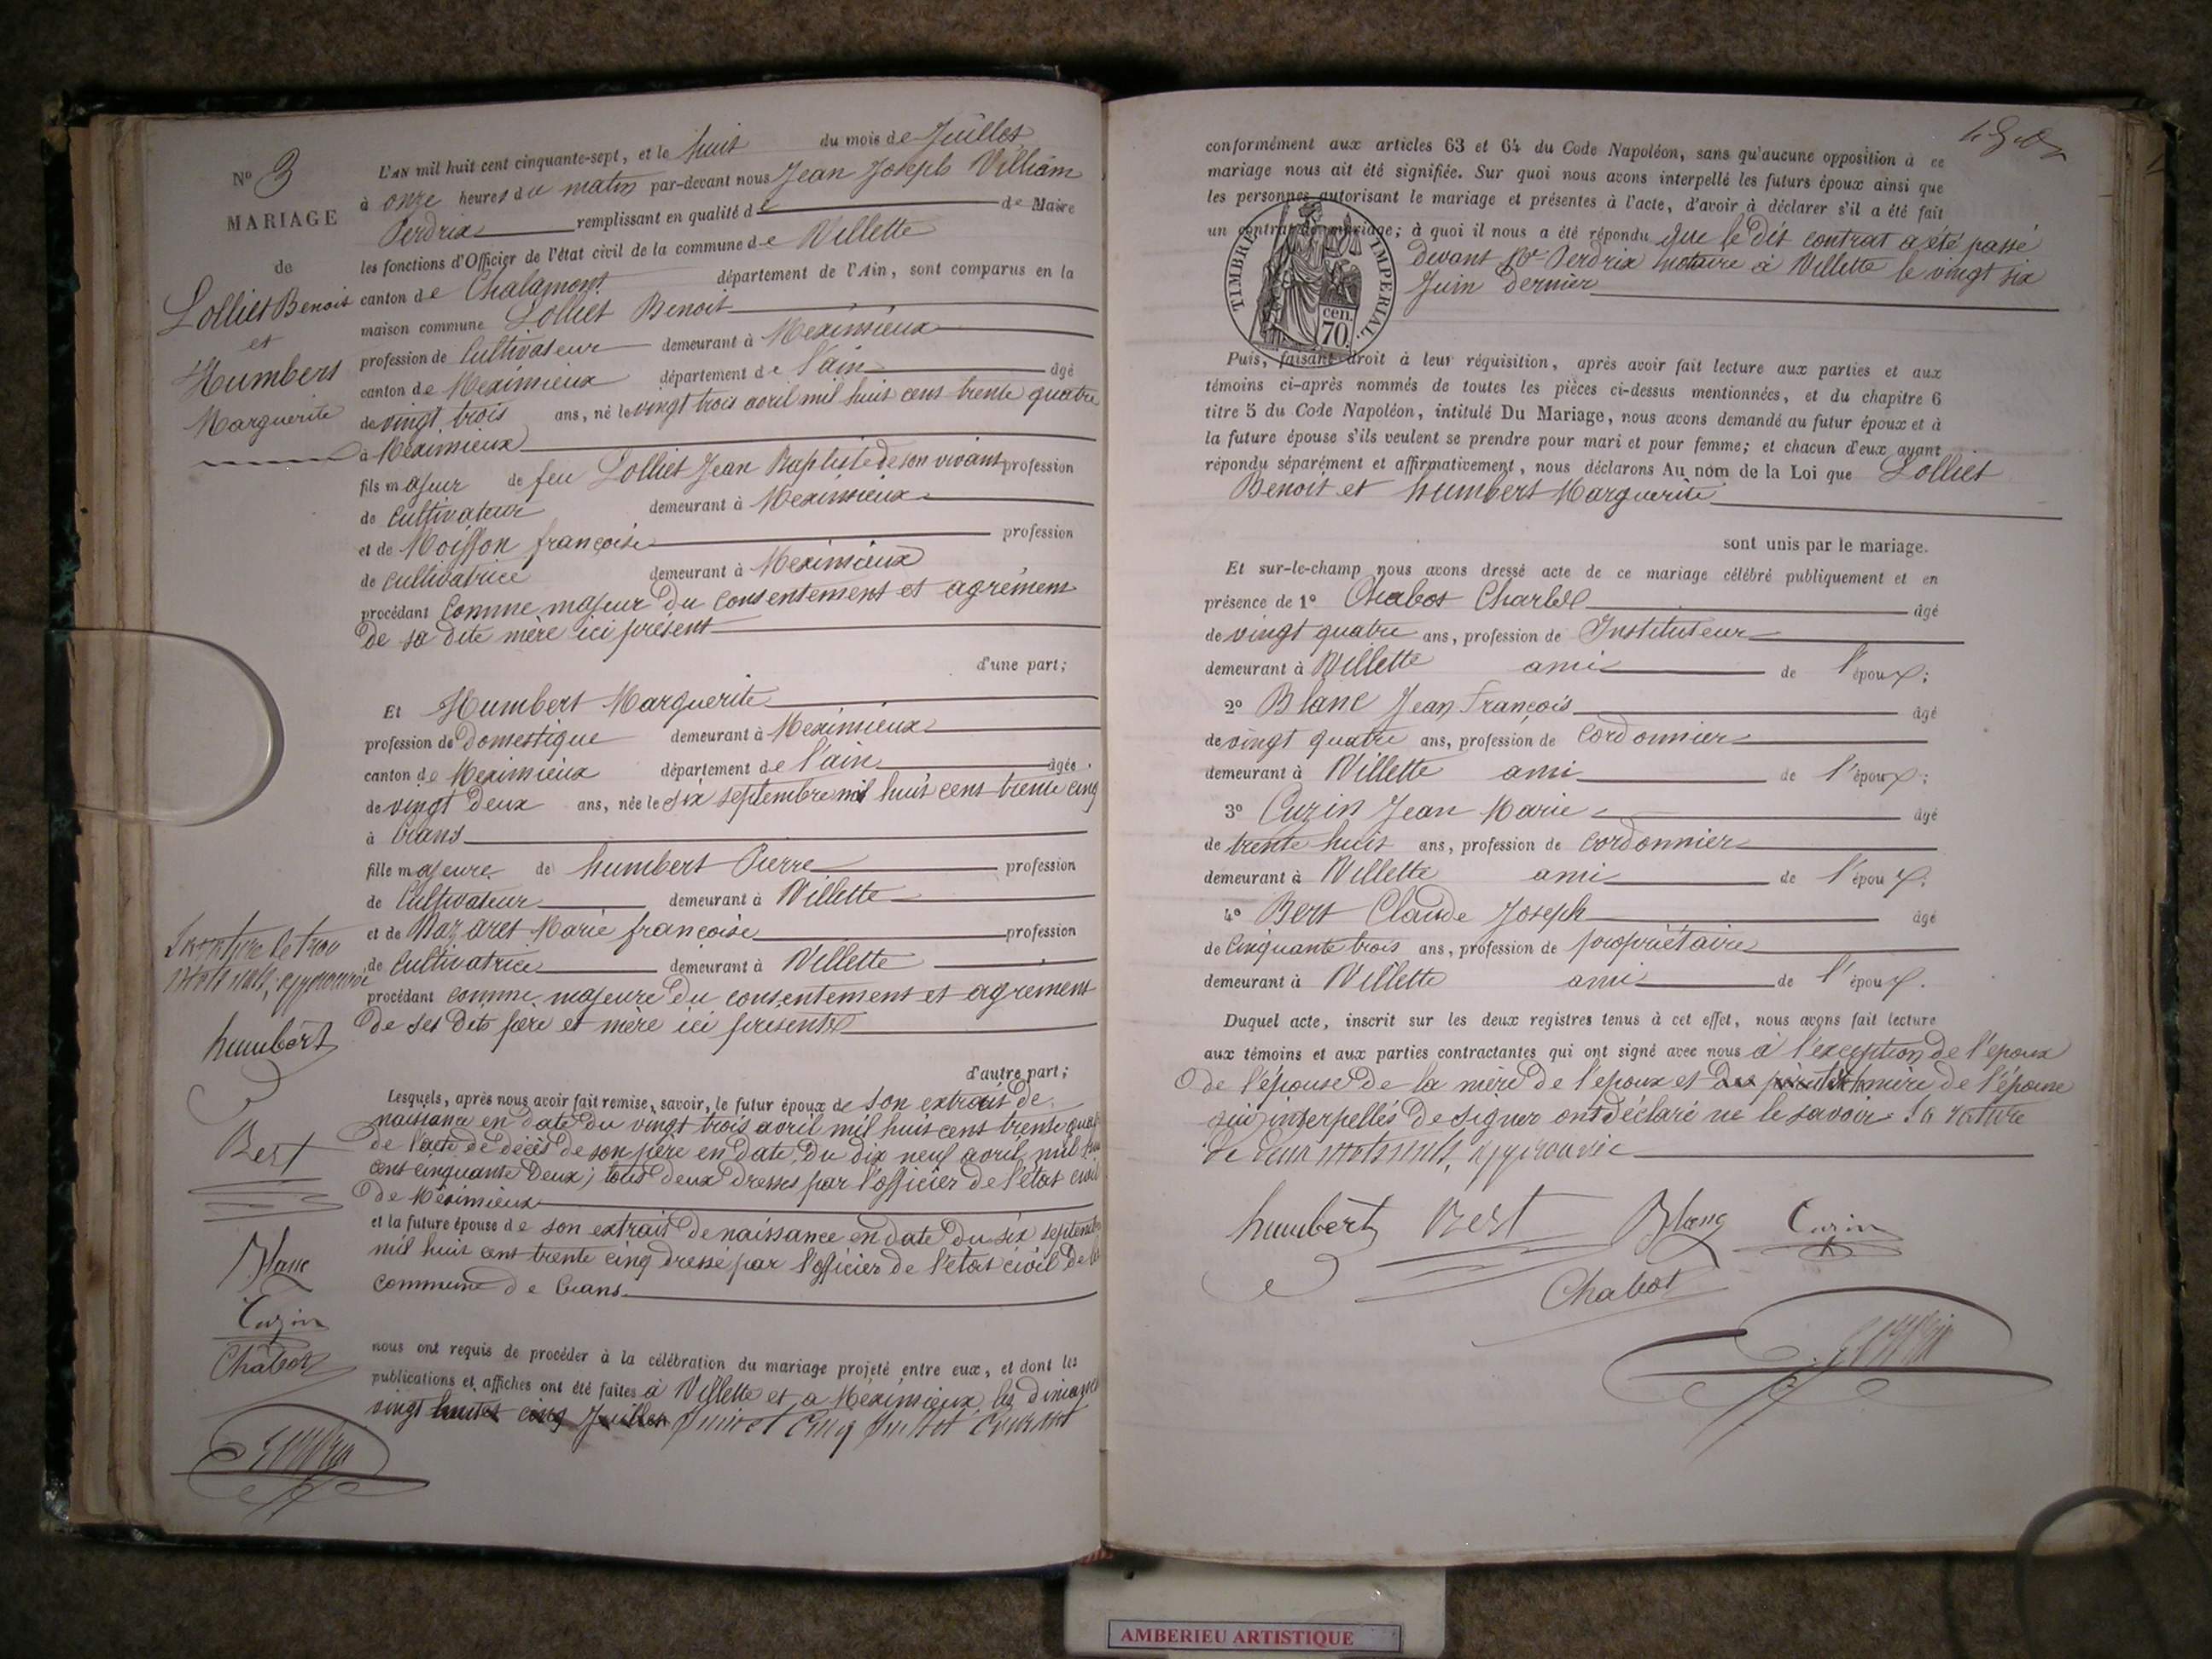 N° 3
MARIAGE
de
Lolliet Benoit
et
Humbert
Marguerite
L'AN mil huit cent cinquante-sept, et le huit du mois de Juillet
à onze heures du matin par-devant nous Jean Joseph William
Perdrix remplissant en qualité de Maire
les fonctions d'Officier de l'état civil de la commune de Villette
canton de Chalamont département de l'Ain, sont comparus en la
maison commune Lolliet Benoit
profession de Cultivateur demeurant à Meximieux
canton de Meximieux département de l'ain âgé
de vingt trois ans, né le vingt trois avril mil huit cent trente quatre
à Meximieux
fils majeur de feu Lolliet Jean Baptiste de son vivant profession
de Cultivateur demeurant à Meximieux
et de Moiffon françoise profession
de cultivatrice demeurant à Meximieux
procédant Comme majeur du consentement et agrément
de sa dite mère ici présent
d'une part;
Et Humbert Marguerite
profession de domestique demeurant à Meximieux
canton de Meximieux département de l'ain âgée
de vingt deux ans, née le six septembre mil huit cent trente cinq
à Crans
fille majeure de humbert Pierre profession
de Cultivateur demeurant à Villette
et de Nazaret Marie françoise profession
de Cultivatrice demeurant à Villette
procédant comme majeure du consentement et agrément
de ses dits père et mère ici présents
d'autre part;
Lesquels, après nous avoir fait remise, savoir, le futur époux de son extrait de
naissance en date du vingt trois avril mil huit cent trente quat
de l'acte de décès de son père en date du dix neuf avril mil hui
cent cinquante deux; tous deux dressés par l'officier de l'état civil
de Meximieux
et la future épouse de son extrait de naissance en date du six septemb
mil huit cent trente cinq dressé par l'officier de l'état civil de la
commune de Crans
nous ont requis de procéder à la célébration du mariage projeté entre eux, et dont les
publications et affiches ont été faites à Villette et a Meximieux les dimanch
vingt huit et cinq Juillet Juin et Cinq Juillet Courant
La rature de trois
mots nuls, approuvée
humbert
Bert
Blanc
Cuzin
Chabot
conformément aux articles 63 et 64 du Code Napoléon, sans qu'aucune opposition à ce
mariage nous ait été signifiée. Sur quoi nous avons interpellé les futurs époux ainsi que
les personnes autorisant le mariage et présentes à l'acte, d'avoir à déclarer s'il a été fait
un contrat de mariage; à quoi il nous a été répondu que le dit contrat a été passé
devant Me Perdrix notaire à Villette le vingt six
Juin dernier
TIMBRE IMPERIAL.
cen.
70.
Puis, faisant droit à leur réquisition, après avoir fait lecture aux parties et aux
témoins ci-après nommés de toutes les pièces ci-dessus mentionnées, et du chapitre 6
titre 5 du Code Napoléon, intitulé Du Mariage, nous avons demandé au futur époux et à
la future épouse s'ils veulent se prendre pour mari et pour femme; et chacun d'eux ayant
répondu séparément et affirmativement, nous déclarons Au nom de la Loi que Lolliet
Benoit et humbert Marguerite
sont unis par le mariage.
Et sur-le-champ nous avons dressé acte de ce mariage célébré publiquement et en
présence de 1° Chabot Charles âgé
de vingt quatre ans, profession de Instituteur
demeurant à Villette ami de l'époux;
2° Blanc Jean François âgé
de vingt quatre ans, profession de Cordonnier
demeurant à Villette ami de l'époux;
3° Cuzin Jean Marie âgé
de trente huit ans, profession de cordonnier
demeurant à Villette ami de l'époux;
4° Bert Claude Joseph âgé
de Cinquante trois ans, profession de propriétaire
demeurant à Villette ami de l'époux.
Duquel acte, inscrit sur les deux registres tenus à cet effet, nous avons fait lecture
aux témoins et aux parties contractantes qui ont signé avec nous à l'exception de l'epoux
de l'épouse de la mère de l'epoux et mère de l'épouse
qui interpellés de signer ont déclaré ne le savoir. La rature
de deux mots nuls, approuvée
humbert Bert Blanc Cuzin
Chabot
AMBERIEU ARTISTIQUE